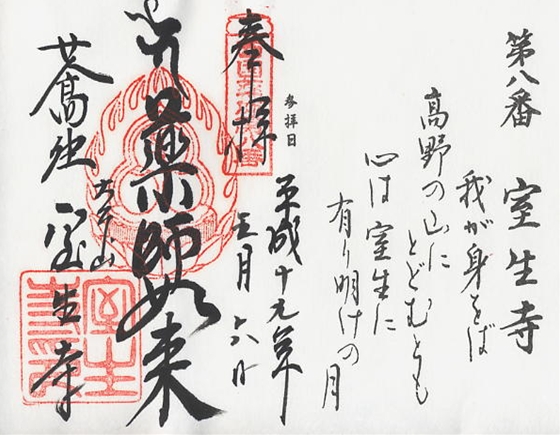 第八番　室生寺
我が身をば
高野の山に
とどむとも
心は室生に
有り明けの月
参拝日
平成十九年
五月六日
奉拝
薬師如来
女人高野
室生寺
室生